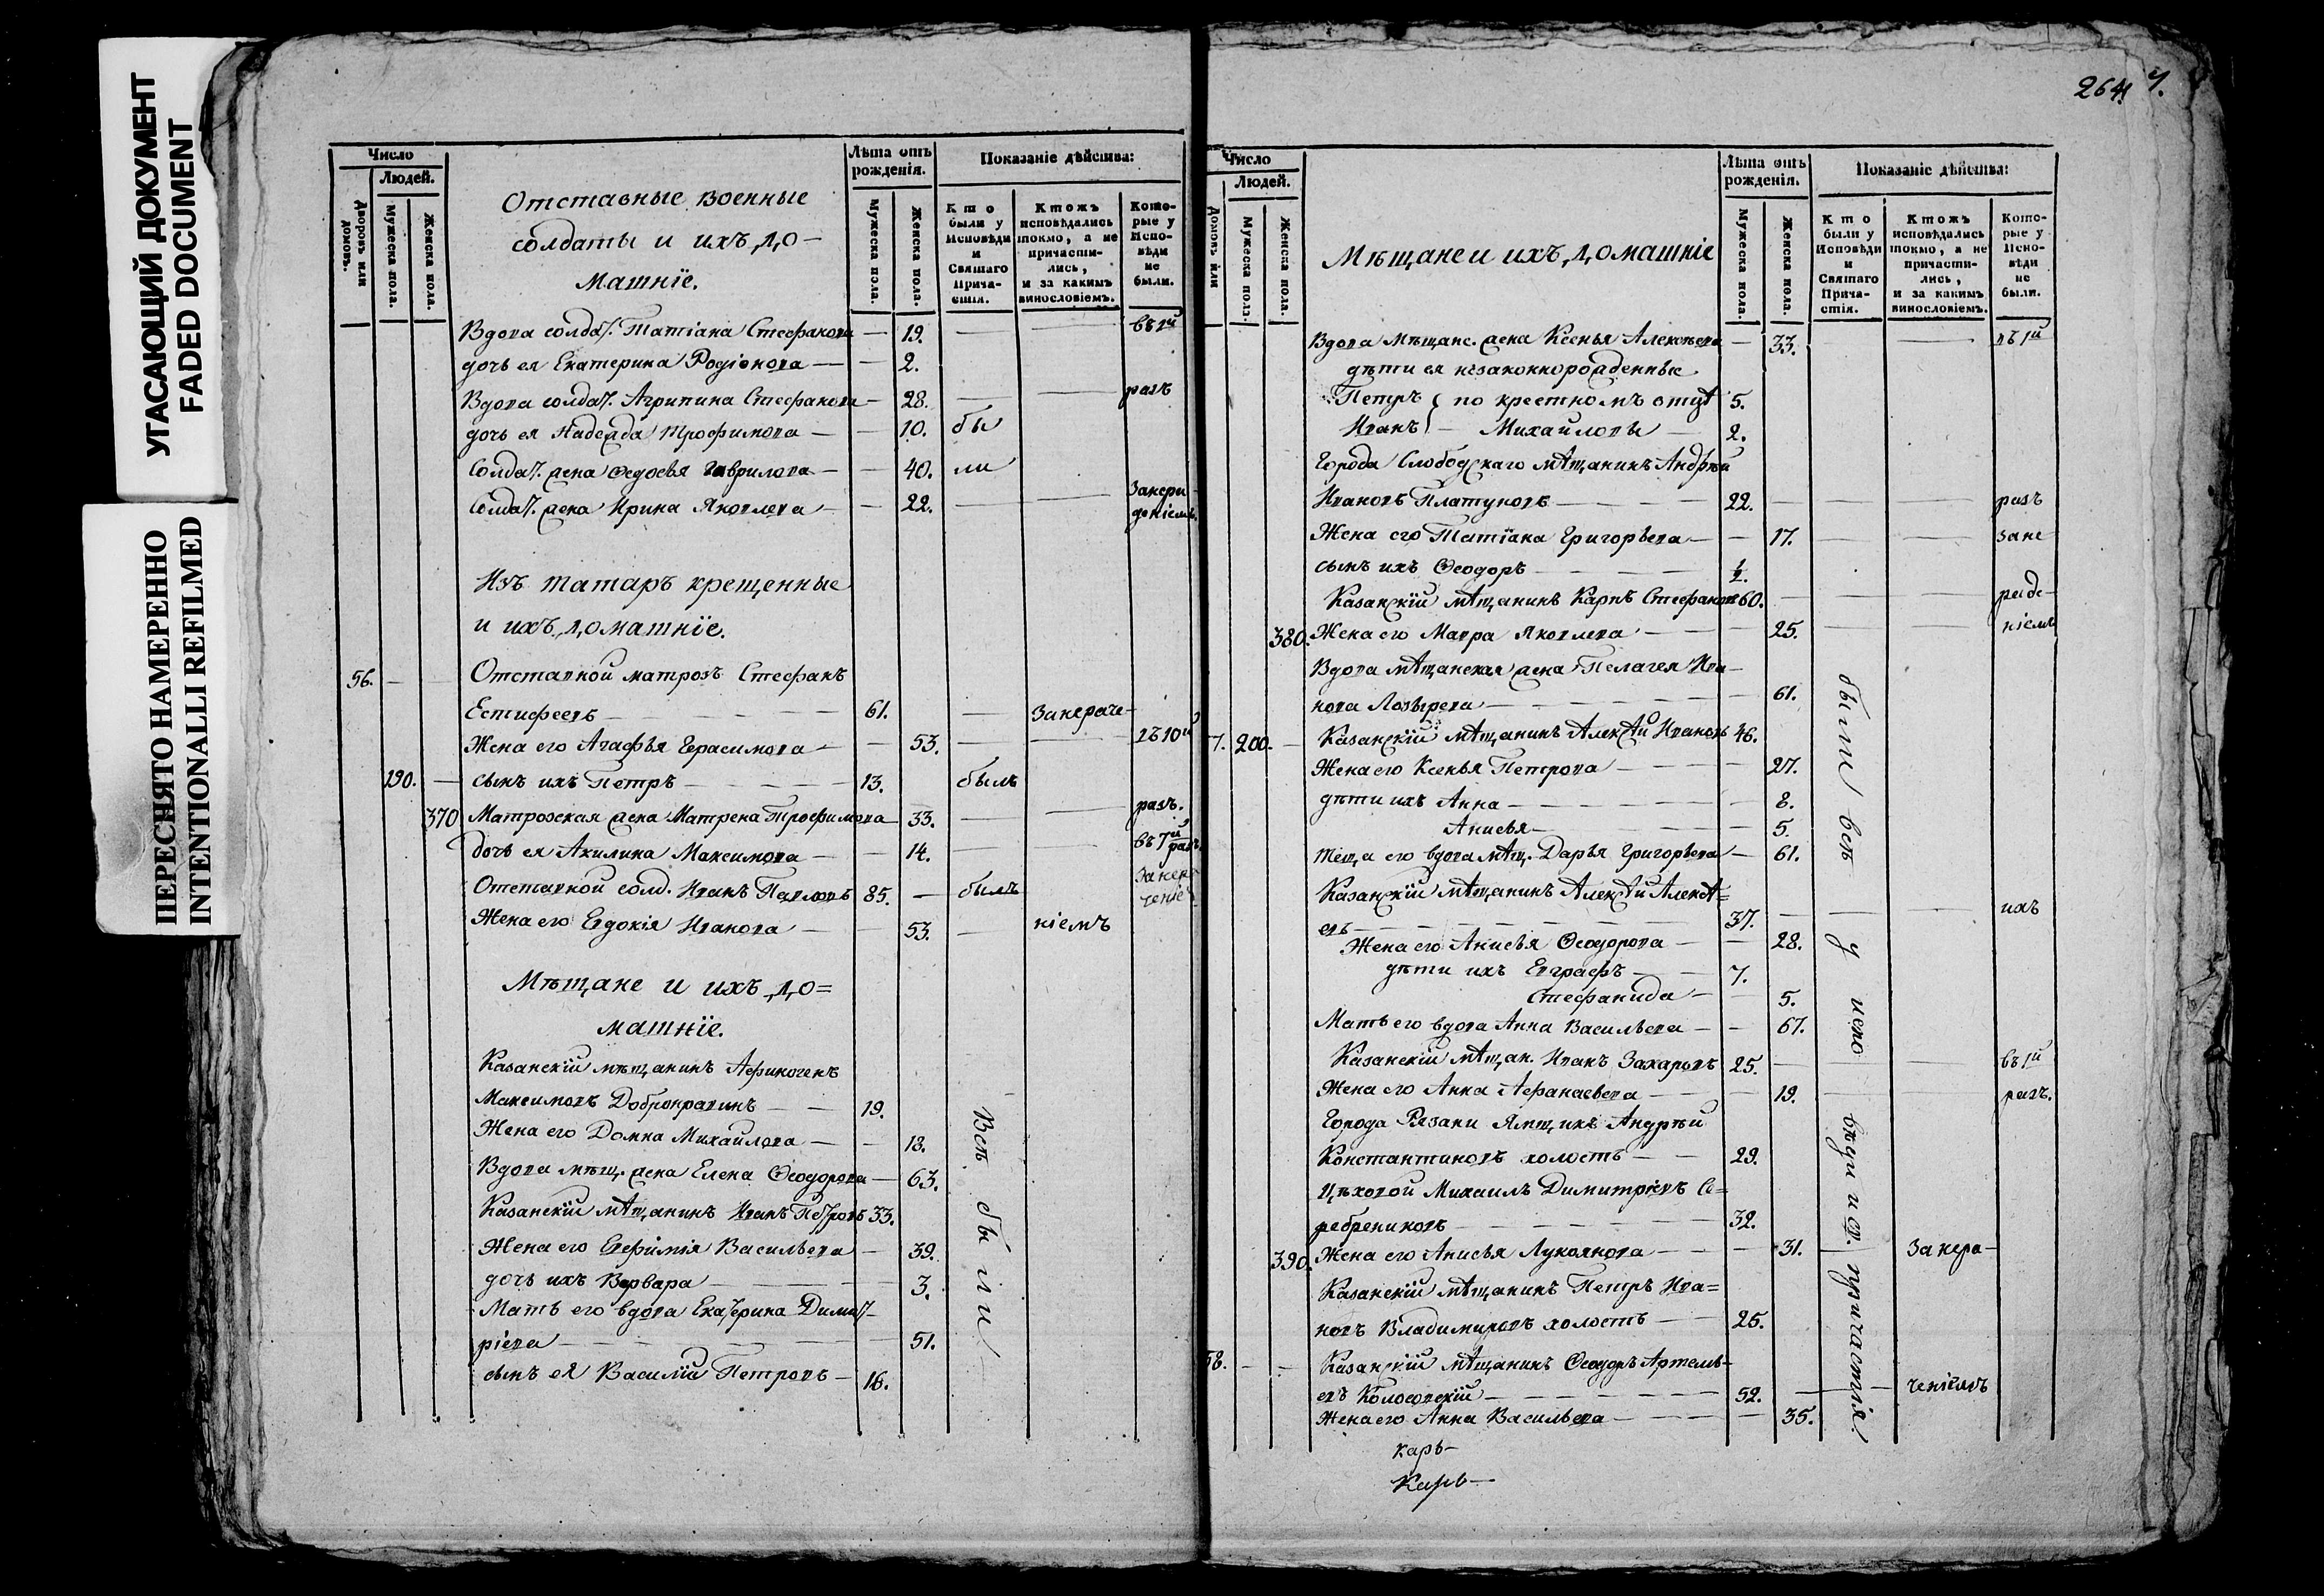 УГАСАЮЩИЙ ДОКУМЕНТ
FADED DOCUMENT
ПЕРЕСНЯТО НАМЕРЕННО
INTENTIONALLI REFILMED
Число
Людей.
Дворовъ или домовъ.
Мужеска пола.
Женска пола.
Отставные военные
солдаты и ихъ до-
машнїе.
Лѣта отъ рожденія.
Мужеска пола.
Женска пола.
Показаніе дѣйства:
Кто были у Исповѣди и Святаго Прича- стія.
Ктожъ исповѣдались токмо, а не причасти- лись, и за какимъ винословіемъ.
Кото- рые у Испо- вѣди не были.
Вдова солдат. Татіана Стефанова — 19. — — въ 1й
дочь ея Екатерина Родіонова — — 2.
Вдова солдат. Агрипина Стефанова — 28. — — разъ
дочь ея Надежда Трофимова — — 10. бы
Солдат. жена Федосья Гаврилова — — 40. ли
Солдат. жена Ирина Яковлева — — 22. — —
Изъ татаръ крещенные
и ихъ домашнїе.
56. — — Отставной матрозъ Стефанъ
Евтифеевъ — 61. —
Жена его Агафья Герасимова — — 53. — — въ 10й
190. — сынъ ихъ Петръ — 13. былъ
370 Матрозская жена Матрена Трофимова 33. — — разъ.
дочь ея Акилина Максимова — — 14. — — въ 7й разъ.
Отставной солд. Иванъ Павловъ 85. — былъ
Жена его Евдокія Иванова — — 53. — ніемъ
Мѣщане и ихъ до=
машнїе.
Казанскїй мѣщанинъ Афиногенъ
Максимовъ Добронравинъ — 19.
Жена его Домна Михайлова — — 18.
Вдова мѣщ. жена Елена Ѳеодорова — 63.
Казанскїй мѣщанинъ Иванъ Петровъ 33.
Жена его Евфимія Васильева — 39.
дочь ихъ Варвара — 3.
Мать его вдова Екатерина Димит-
ріева — 51.
сынъ ея Василїй Петровъ — 16.
Всѣ были
264. 7.
Число
Людей.
Домовъ или
Мужеска пола.
Женска пола.
Мѣщане и ихъ домашніе
Лѣта отъ рожденія.
Мужеска пола.
Женска пола.
Показаніе дѣйства:
Кто были у Исповѣди и Святаго Прича- стія.
Ктожъ исповѣдались токмо, а не причасти- лись, и за какимъ винословіемъ.
Кото- рые у Испо- вѣди не были.
Вдова мѣщанс. жена Ксенья Алексѣева — 33. — въ 1й
дѣти ея незаконнорожденные
Петръ по крестномъ отцѣ 5.
Иванъ — Михайловы — 2.
Города Слободскаго мѣщанинъ Андрѣй
Ивановъ Платуновъ — 22. — — — разъ
Жена его Татїана Григорьева — — 17. — —
сынъ ихъ Ѳеодоръ — 1/2.
Казанскїй мѣщанинъ Карпъ Стефановъ 60. — — —
380. Жена его Мавра Яковлева — — 25. — — ніемъ
Вдова мѣщанская жена Пелагея Ива-
нова Лозырева — 61.
7. 200. — Казанскїй мѣщанинъ Алексѣй Ивановъ 46.
Жена его Ксенья Петрова — 27.
дѣти ихъ Анна — 8.
Анисья — 5.
теща его вдова мѣщ. Дарья Григорьева — 61.
Казанскїй мѣщанинъ Алексѣй Алексѣ=
евъ — 37. — — — ихъ
Жена его Анисья Ѳеодорова — — 28.
дѣти ихъ Евграфъ — 7.
Стефанида — 5.
Мать его вдова Анна Васильева — — 67.
Казанскїй мѣщан. Иванъ Захаровъ 25. — — въ 1й
Жена его Анна Афанасьева — — 19. — — разъ.
Города Рязани Ямщикъ Андрѣй
Константиновъ холостъ — 29.
Цѣховой Михаилъ Димитріевъ Се=
ребрениковъ — 32.
390. Жена его Анисья Лукоянова — — 31. —
Казанскїй мѣщанинъ Петръ Ива=
новъ Владимировъ холостъ — 25.
58. — — Казанскїй мѣщанинъ Ѳеодоръ Артемь-
евъ Колосовскїй — 52. — —
Жена его Анна Васильева — — 35.
были всѣ у испо вѣди и св. причастія
карь-
Карь-